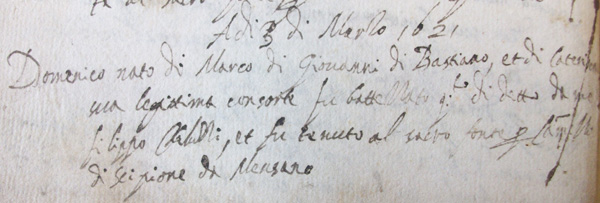 Adi 3 di Marzo 1621
Domenico nato di Marco di Giovanni di Bastiano, et di Caterina
sua legittima consorte fu battezzato q.to dì detto da me
filippo et fu tenuto al sacro fonte p
di Scipione da Mensano